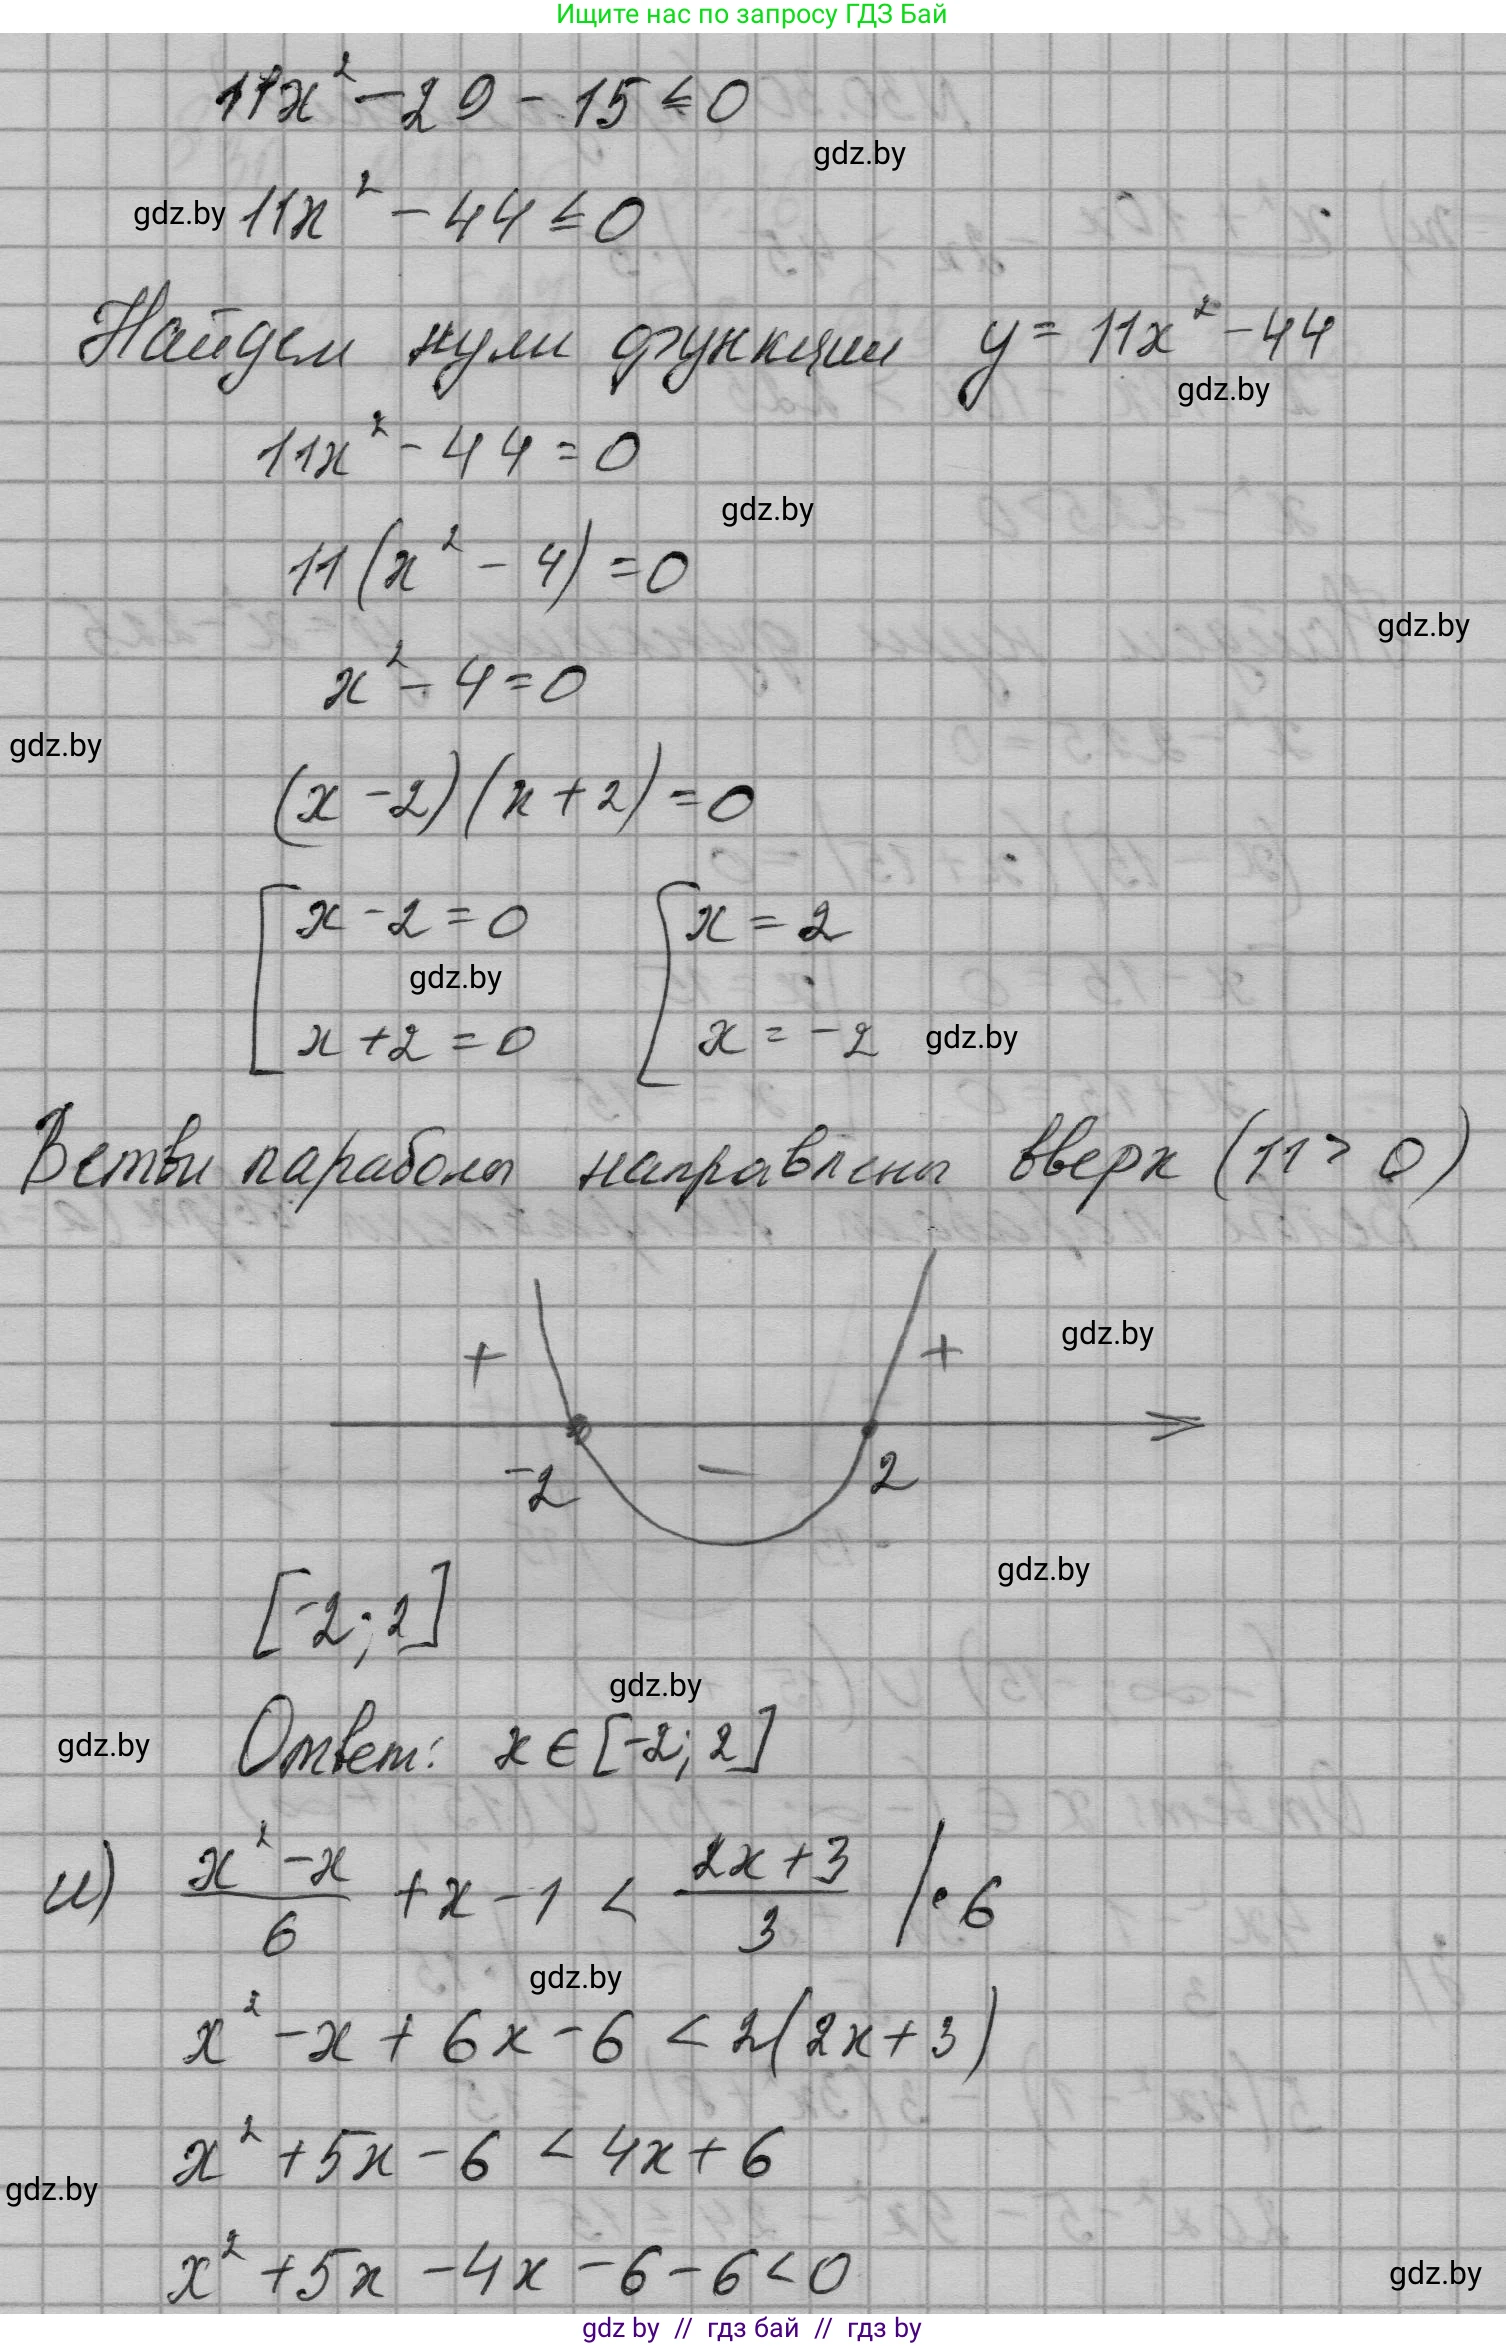 Ищите нас по запросу ГДЗ Бай
11x² - 29 - 15 ≤ 0
gdz.by
gdz.by 11x² - 44 ≤ 0
Найдем нули функции y = 11x² - 44
gdz.by
11x² - 44 = 0
gdz.by
11(x² - 4) = 0
gdz.by
x² - 4 = 0
gdz.by
(x - 2)(x + 2) = 0
[x - 2 = 0 [x = 2
gdz.by
x + 2 = 0 x = -2 gdz.by
Ветви параболы направлены вверх (11 > 0)
gdz.by
+ +
-2 - 2
gdz.by
[-2; 2]
gdz.by
gdz.by Ответ: x ∈ [-2; 2]
и) (x² - x)/6 + x - 1 < (2x + 3)/3 |·6
gdz.by
x² - x + 6x - 6 < 2(2x + 3)
x² + 5x - 6 < 4x + 6
gdz.by
x² + 5x - 4x - 6 - 6 < 0
gdz.by
gdz by // гдз бай // гдз by